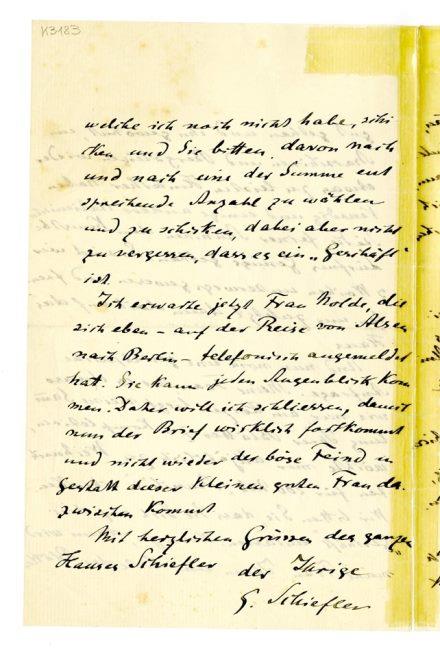 K3183
welche ich noch nicht habe, schi
cken und Sie bitten, davon nach
und nach eine der Summe ent
sprechende Anzahl zu wählen
und zu schicken, dabei aber nicht
zu vergessen, dass es ein „Geschäft"
ist.
Ich erwarte jetzt Frau Nolde, die
sich eben – auf der Reise von Alsen
nach Berlin – telefonisch angemeldet
hat. Sie kann jeden Augenblick kom
men. Daher will ich schliessen, damit
nun der Brief wirklich fortkommt
und nicht wieder der böse Feind in
Gestalt dieser kleinen guten Frau da-
zwischen kommt
Mit herzlichen Grüssen des ganzen
Hauses Schiefler der Ihrige
G. Schiefler